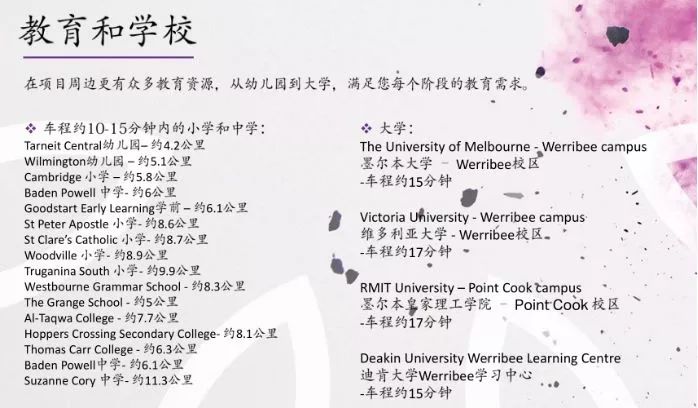 教育和学校
在项目周边更有众多教育资源，从幼儿园到大学，满足您每个阶段的教育需求。
❖ 车程约10-15分钟内的小学和中学：
Tarneit Central幼儿园– 约4.2公里
Wilmington幼儿园 – 约5.1公里
Cambridge 小学 – 约5.8公里
Baden Powell 中学- 约6公里
Goodstart Early Learning学前 – 约6.1公里
St Peter Apostle 小学- 约8.6公里
St Clare’s Catholic 小学- 约8.7公里
Woodville 小学- 约8.9公里
Truganina South 小学- 约9.9公里
Westbourne Grammar School - 约8.3公里
The Grange School - 约5公里
Al-Taqwa College - 约7.7公里
Hoppers Crossing Secondary College- 约8.1公里
Thomas Carr College - 约6.3公里
Baden Powell中学- 约6.1公里
Suzanne Cory 中学- 约11.3公里
❖ 大学：
The University of Melbourne - Werribee campus
墨尔本大学 – Werribee校区
-车程约15分钟
Victoria University - Werribee campus
维多利亚大学 - Werribee校区
-车程约17分钟
RMIT University – Point Cook campus
墨尔本皇家理工学院 – Point Cook 校区
-车程约17分钟
Deakin University Werribee Learning Centre
迪肯大学Werribee学习中心
-车程约15分钟